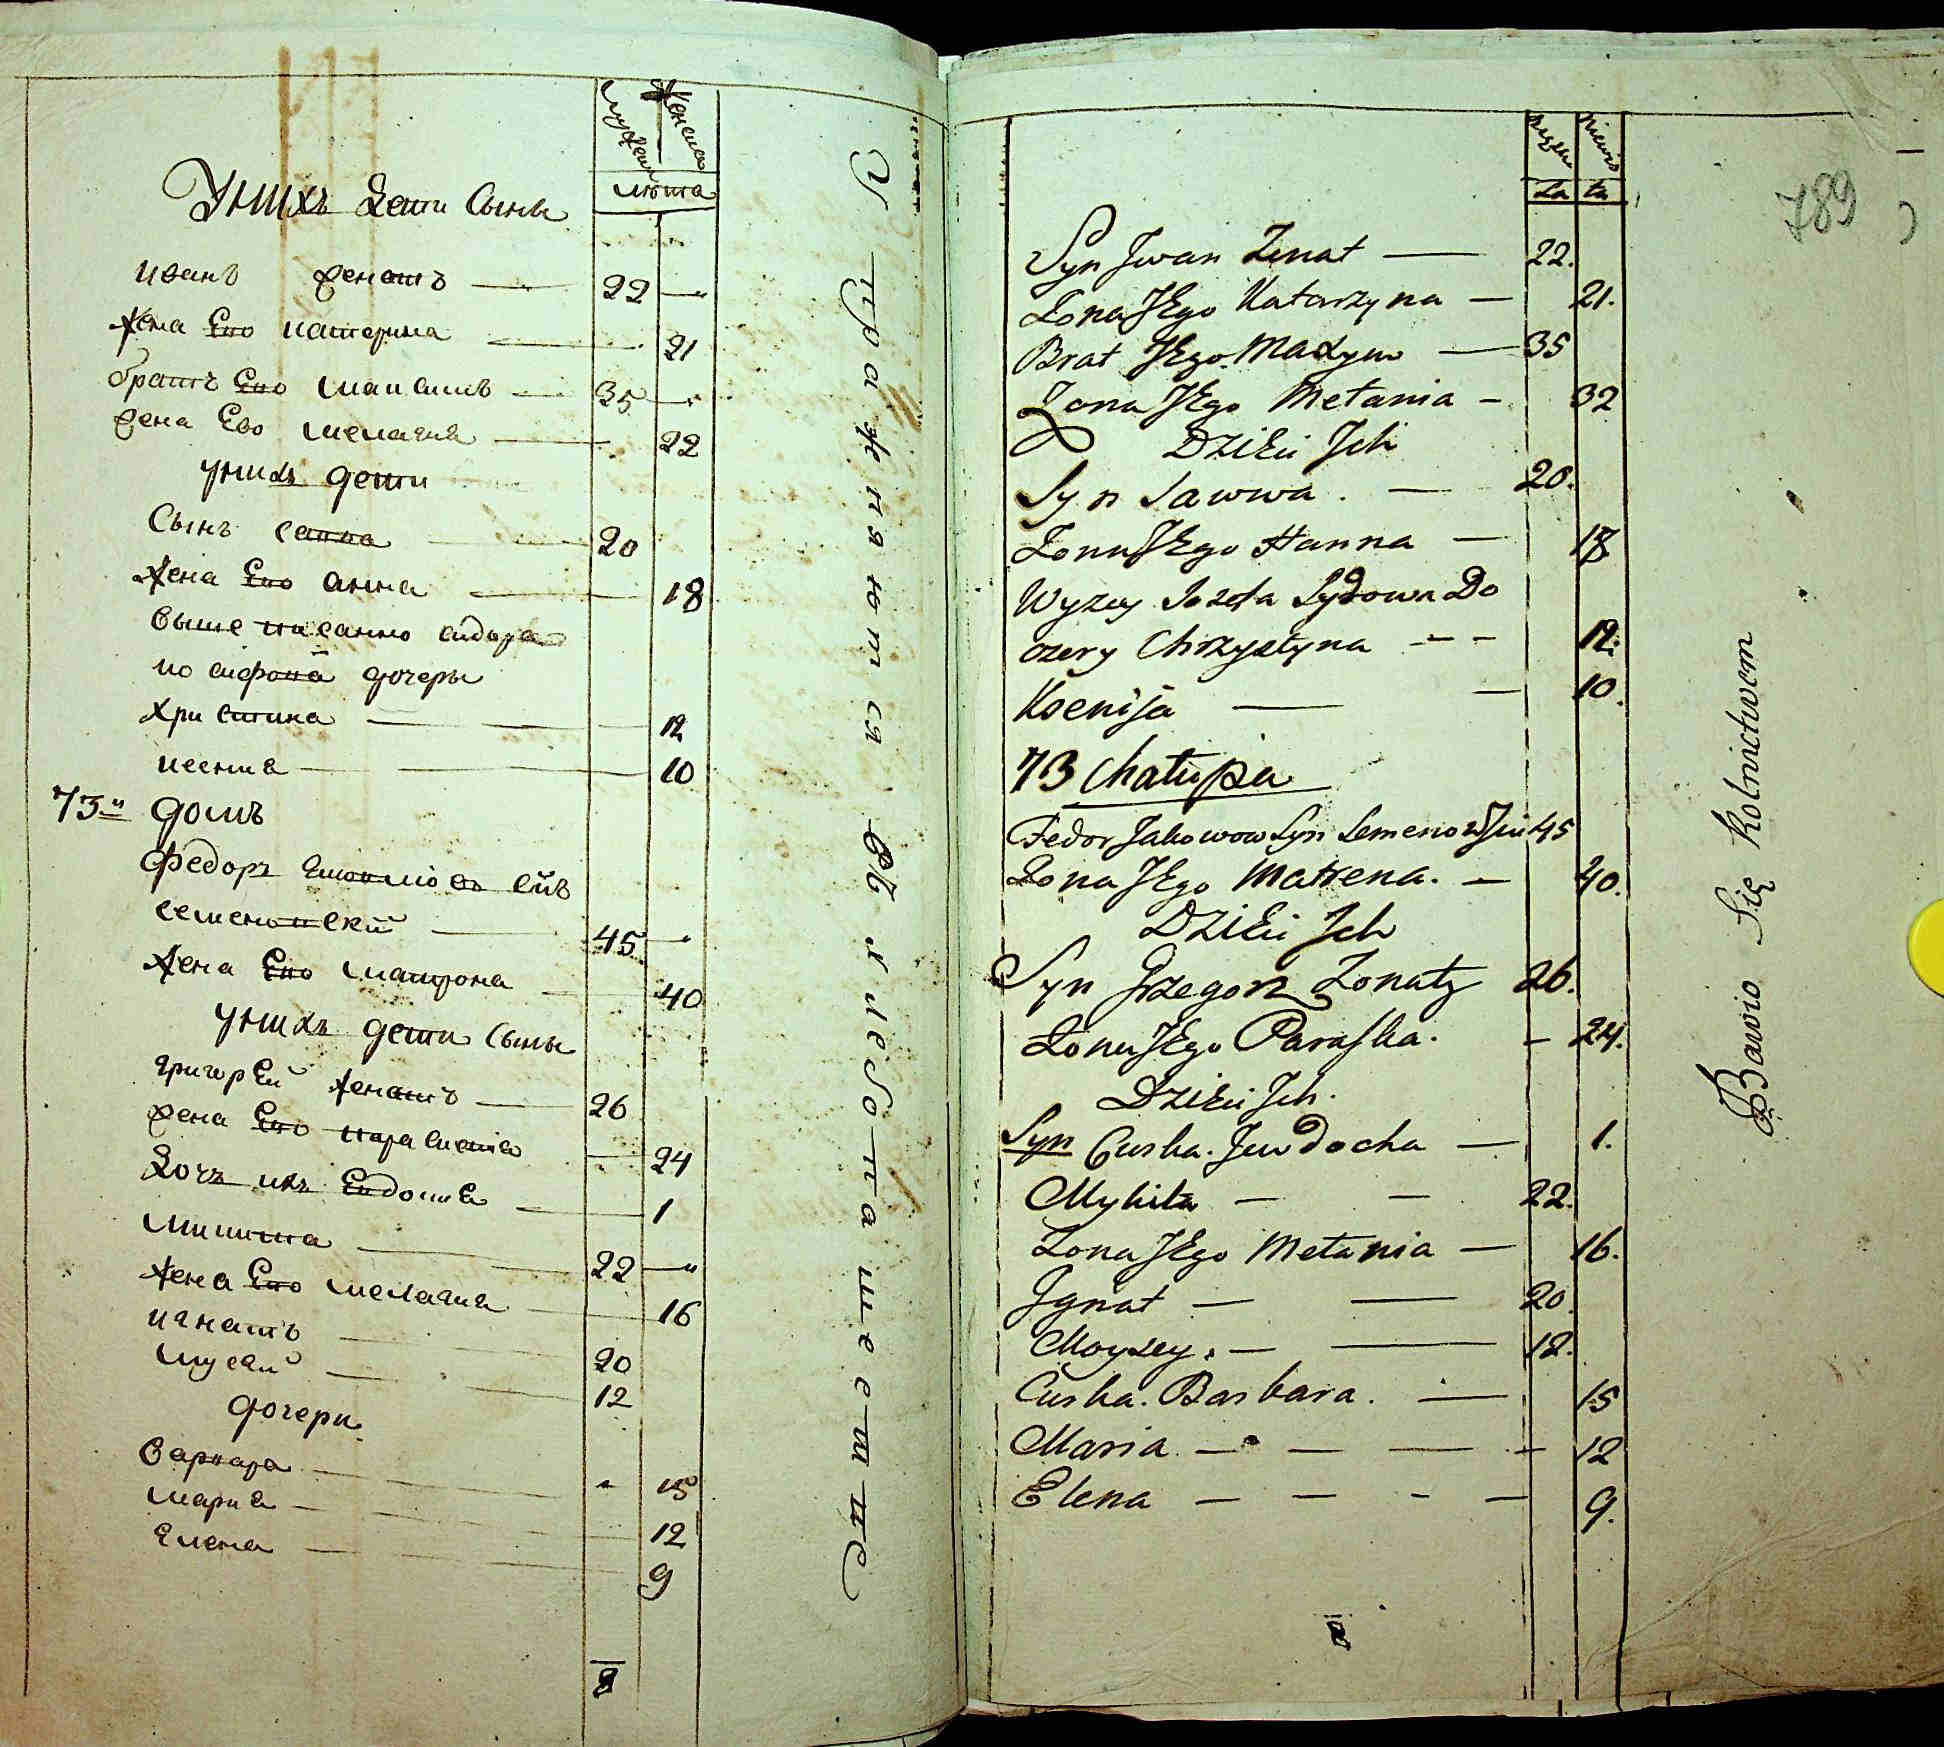 мужска женска
лѣта
Унихъ Дети Сыны
иванъ женатъ — 22 —
Жена Ево катерина — 21
братъ Ево максимъ — 35 —
жена Ево мелания — 22
унихъ дети
Сынъ савва — 20
Жена Ево анна — 18
выше писанно сидора
дочеры
христина — 12
ксения — 10
73й домъ
Федоръ снъ
семеновский — 45 —
Жена Ево матрона — 40
унихъ дети Сыны
григорей женатъ — 26
жена Ево параскева — 24
Дочъ ихъ Евдокия — 1
микита — 22 —
Жена Ево мелания — 16
игнатъ — 20
мусей — 12
дочери
варвара — 15
мария — 12
елена — 9
Упражняются въ хлебопашестве
789
La ta
Syn Jwan Zenat — 22.
Zona JEgo Katarzyna — 21.
Brat JEgo Maxym — 35
Zona JEgo Mełania — 32
Dzieci Jch
Syn Sawwa . — 20.
Zona JEgo Hanna — 18
Wyzey Sydowa Do
czery Chrzystyna — — 12.
Ksenija — — 10.
73 Chałupa
Fedor Jakowow Syn 45
Zona JEgo Matrena. — 40.
Dzieci Jch
Syn Grzegorz Zonaty 26.
Zona JEgo Paraska. — 24.
Dzieci Jch.
Syn Curka. Jewdocha — 1.
Mykita — — 22.
Zona JEgo Mełania — 16.
Jgnat — — 20.
Moyzey. — — 12.
Curka. Barbara. — 15
Maria — — — — 12
Elena — — — — 9.
Bawio Się Rolnictwem